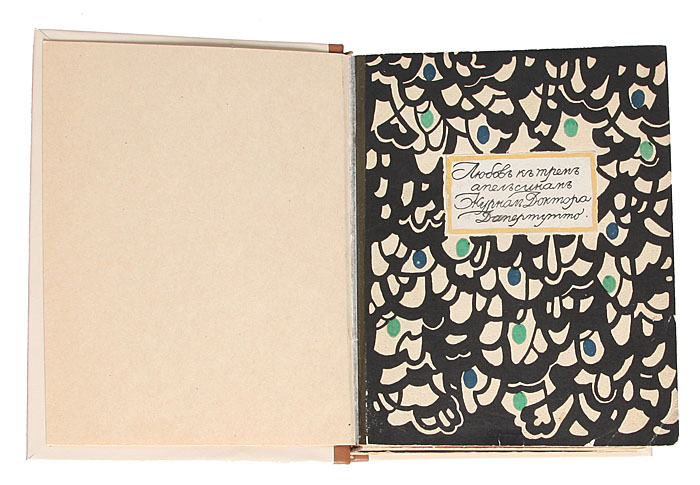 Любовь къ тремъ
апельсинамъ
Журнал Доктора
Дапертутто.